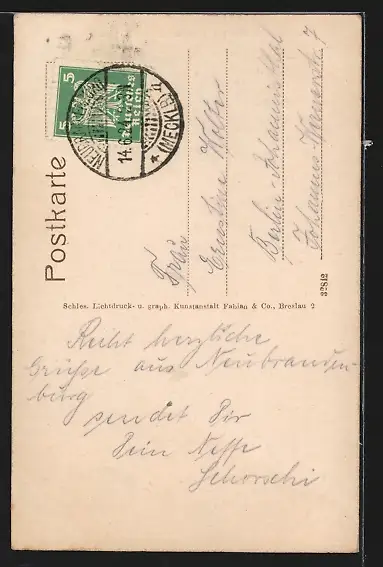 Postkarte
5 5
Deutsches Reich
NEUBRANDENBURG
14.6.
(MECKLB.)
Frau
Ernestine Wolter
Berlin-Johannisthal
Johannes Wernerstr. 7
Schles. Lichtdruck- u. graph. Kunstanstalt Fabian & Co., Breslau 2
32812
Recht herzliche
Grüße aus Neubranden-
burg
sendet Dir
Dein Neffe
Schorschi